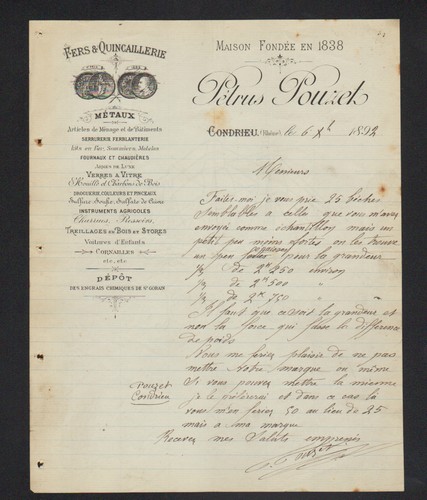 FERS & QUINCAILLERIE
MÉTAUX
Articles de Ménage et de Bâtiments
SERRURERIE FERBLANTERIE
Lits en Fer, Sommiers, Matelas
FOURNAUX ET CHAUDIÈRES
VERRES A VITRE
Houille et Charbons de Bois
DROGUERIE, COULEURS ET PINCEAUX
Soufre, Sulfate de Cuivre
INSTRUMENTS AGRICOLES
Charrues, Pressoirs,
TREILLAGES EN BOIS ET STORES
Voitures d'Enfants
CORNAILLES
etc., etc.
DÉPÔT
DES ENGRAIS CHIMIQUES DE ST GOBAIN
MAISON FONDÉE EN 1838
Pétrus Pouzet
CONDRIEU, (Rhône) le 6 Xb 1892
Messieurs
Faites-moi je vous prie 25 bêches
semblables a celle que vous m'avez
envoyé comme échantillon mais un
petit peu moins fortes
un peu pour la grandeur
de 2k 250 environ
de 2k 500 "
de 2k 750 "
Il faut que ce soit la grandeur et
non la force qui fasse le différence
de poids
Vous me feriez plaisir de ne pas
mettre votre marque ou même
Si vous pouvez mettre la mienne
je le préfèrerai et dans ce cas la
vous m'en feriez 50 au lieu de 25
mais a ma marque
Recevez mes Saluts empressés
P. Pouzet
Pouzet
Condrieu